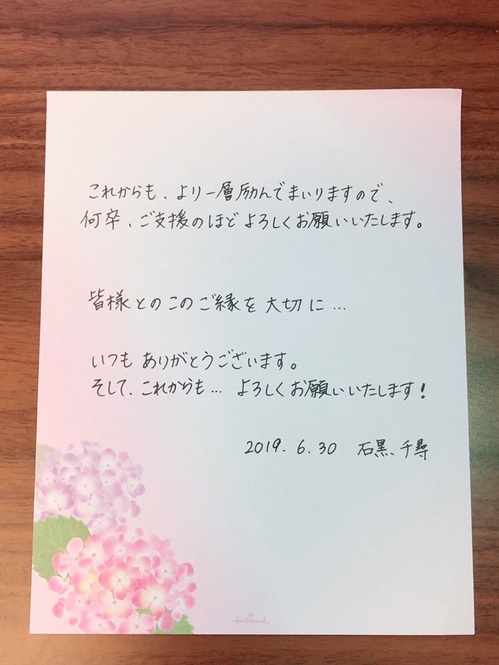 これからも、より一層励んでまいりますので、
何卒、ご支援のほどよろしくお願いいたします。
皆様とのこのご縁を大切に…
いつもありがとうございます。
そして、これからも… よろしくお願いいたします！
2019.6.30 石黒千尋
Hallmark